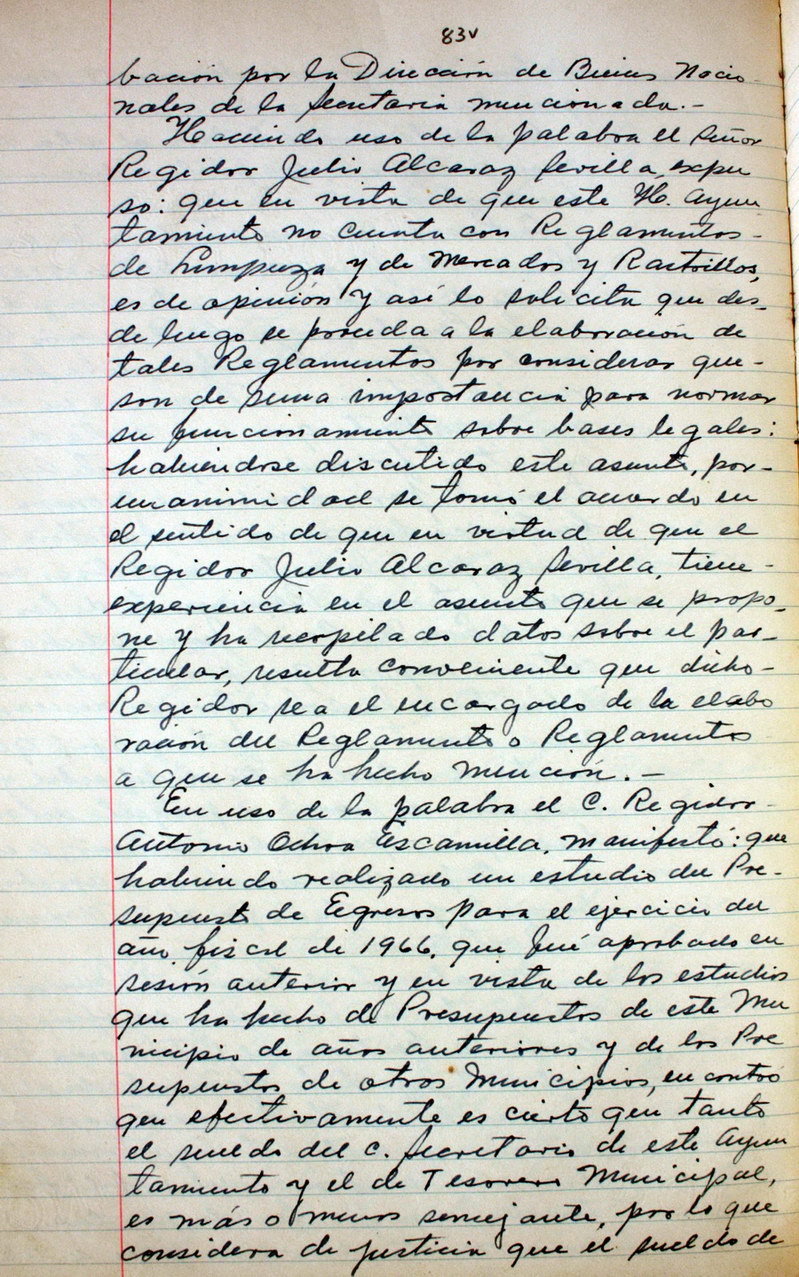 83v
bación por la Dirección de Bienes Nacio-
nales de la Secretaria mencionada.-
Haciendo uso de la palabra el Señor
Regidor Julio Alcaraz Sevilla, expu
so: que en vista de que este H. Ayun
tamiento no cuenta con Reglamentos-
de Limpieza y de Mercados y Rastrillos,
es de opinión y así lo solicita que des-
de luego se proceda a la elaboración de
tales Reglamentos por considerar que-
son de suma importancia para normar
su funcionamiento sobre bases legales:
habiéndose discutido este asunto, por-
unanimidad se tomó el acuerdo en
el sentido de que en virtud de que el
Regidor Julio Alcaraz Sevilla, tiene-
experiencia en el asunto que se propo-
ne y ha recopilado datos sobre el par-
ticular, resulta conveniente que dicho-
Regidor sea el encargado de la elabo
ración del Reglamento o Reglamentos
a que se ha hecho mención.-
En uso de la palabra el C. Regidor-
Antonio Ochoa Escamilla, manifestó: que
habiendo realizado un estudio del Pre-
supuesto de Egresos para el ejercicio del
año fiscal de 1966, que fué aprobado en
sesión anterior y en vista de los estudios
que ha hecho de Presupuestos de este Mu
nicipio de años anteriores y de los Pre
supuestos de otros Municipios, encontró
que efectivamente es cierto que tanto
el sueldo del C. Secretario de este Ayun
tamiento y el de Tesorero Municipal,
es más o menos semejante, por lo que
considera de justicia que el sueldo de